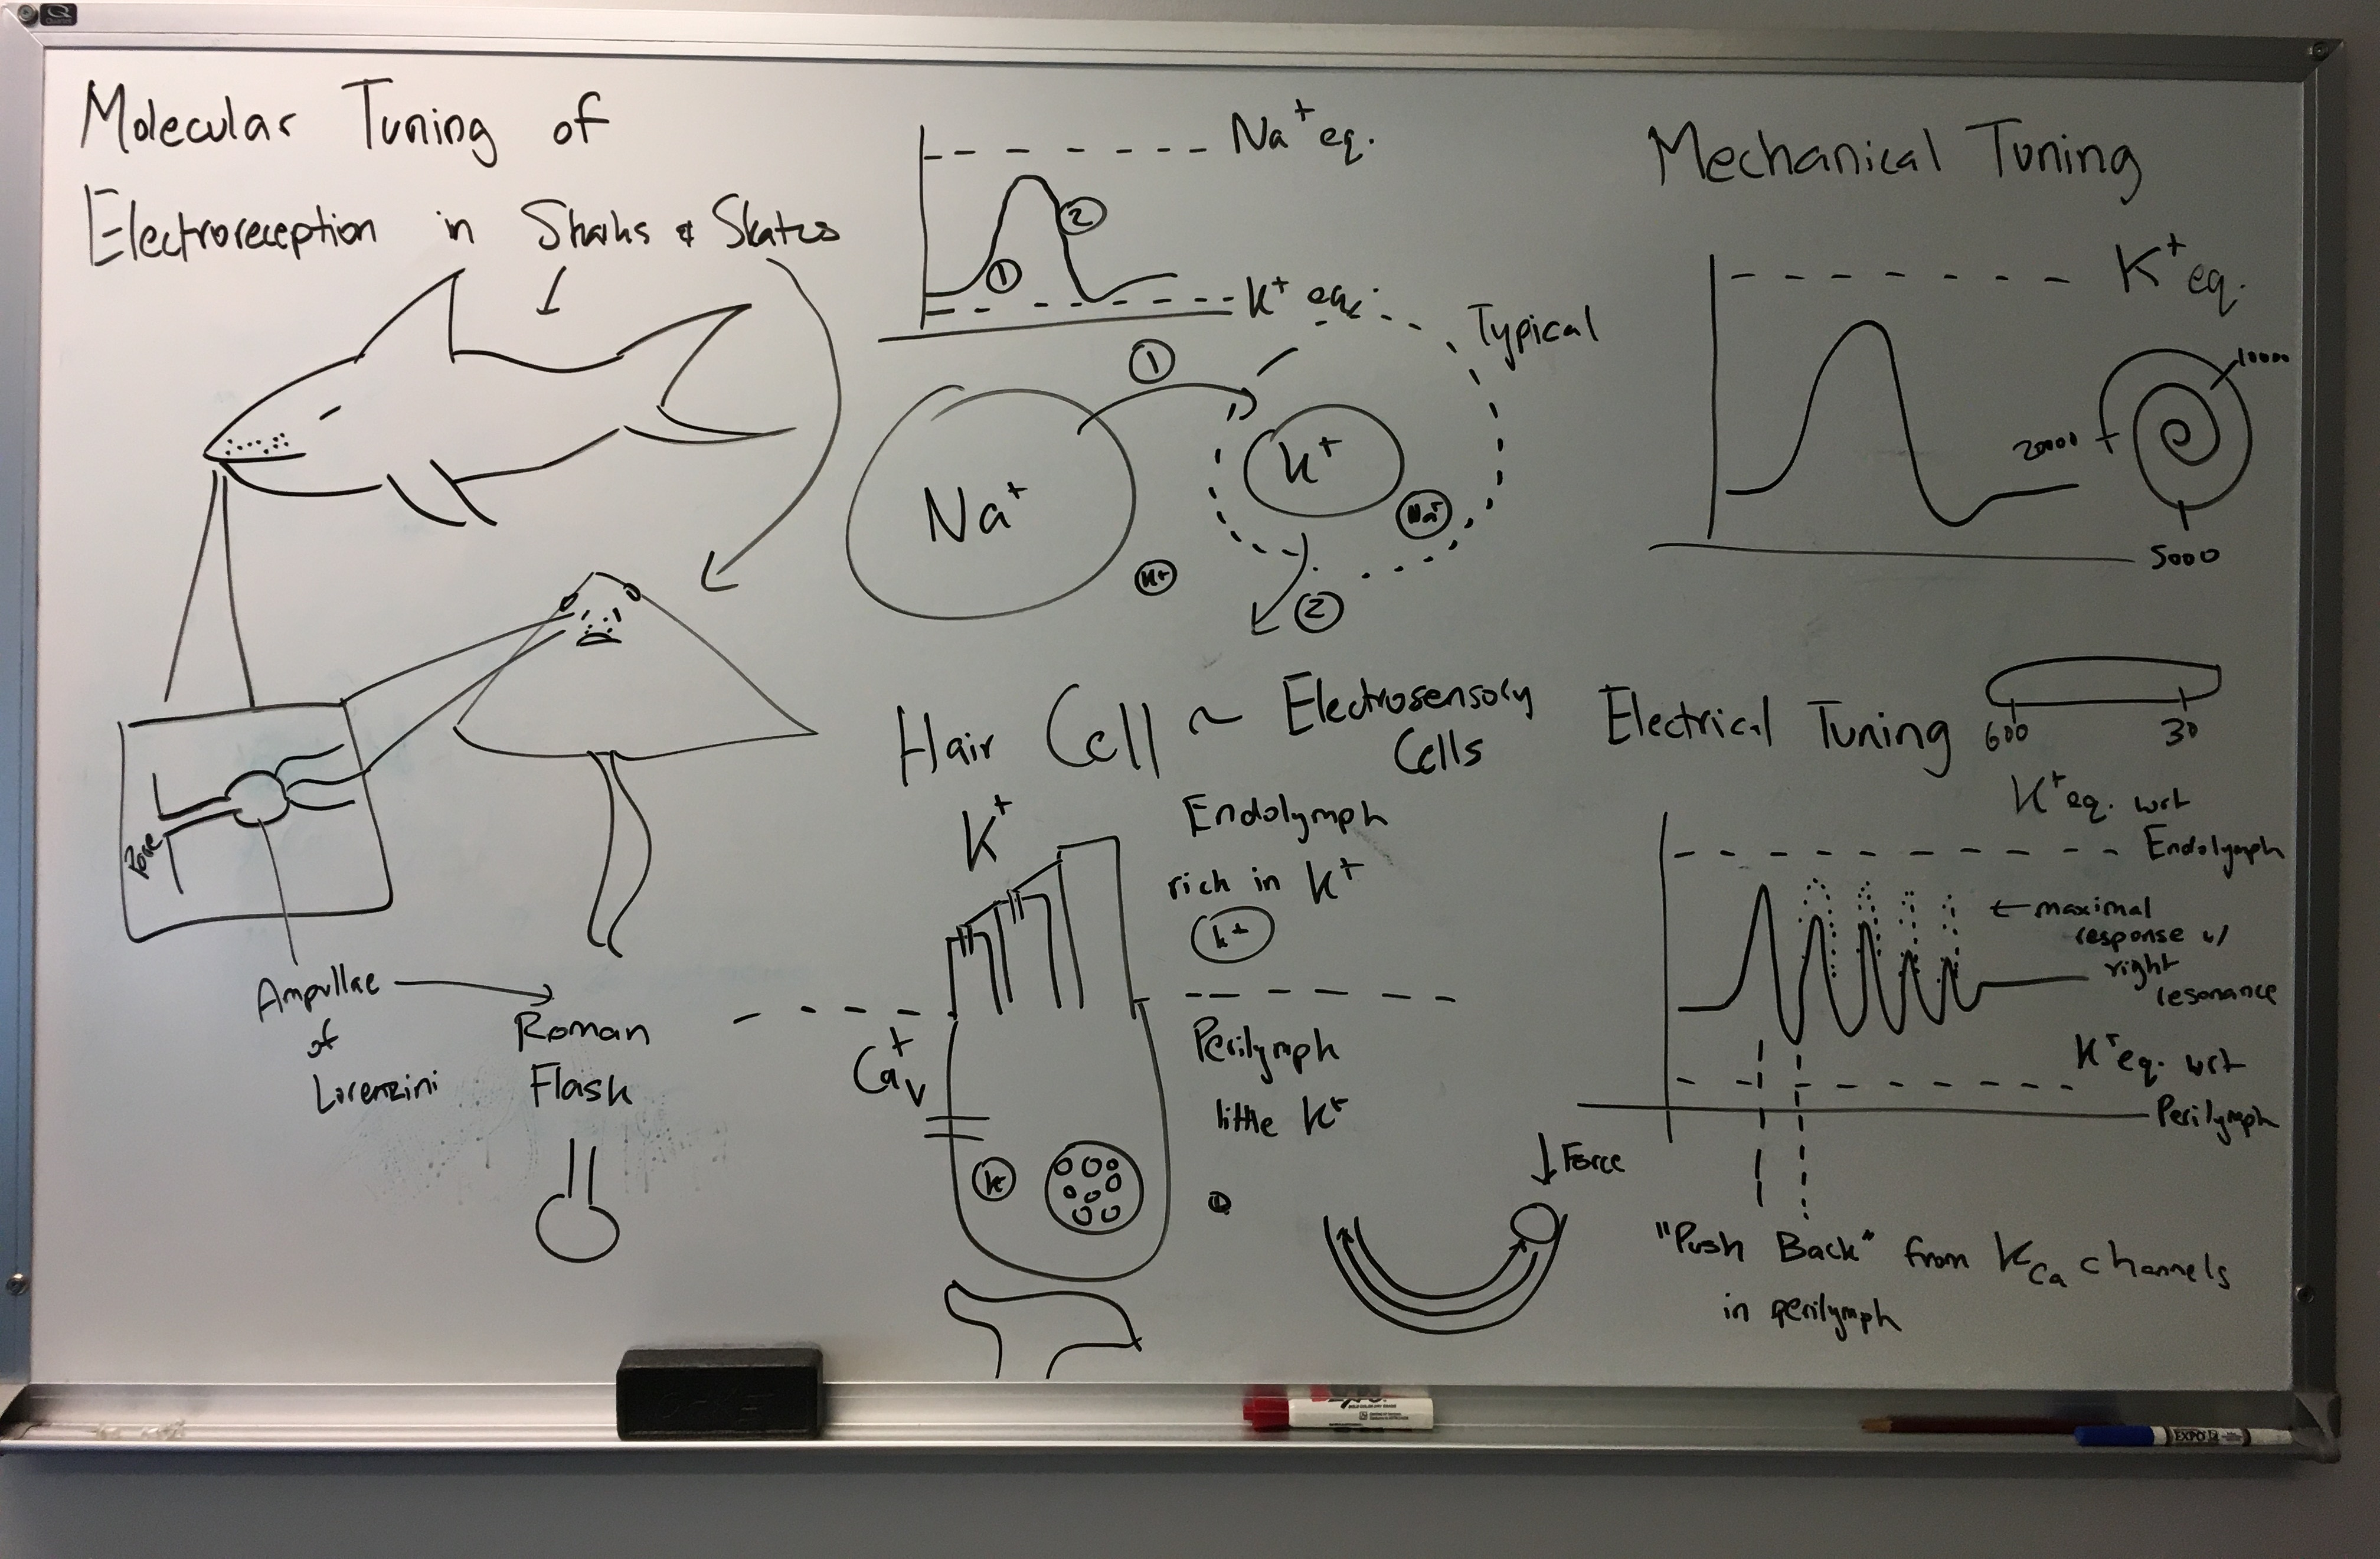 Molecular Tuning of
Electroreception in Sharks & Skates
Pore
Ampullae
of
Lorenzini
Roman
Flask
Na+ eq.
1
2
K+ eq.
Typical
1
Na+
K+
Na+
K+
2
Hair Cell ~ Electrosensory
Cells
K+
Endolymph
rich in K+
K+
Ca+v
Perilymph
little K+
K
Force
Mechanical Tuning
K+ eq.
10000
20000
5000
Electrical Tuning
600
30
K+ eq. wrt
Endolymph
← maximal
response w/
right
resonance
K+ eq. wrt
Perilymph
"Push Back" from KCa channels
in perilymph
EXPO